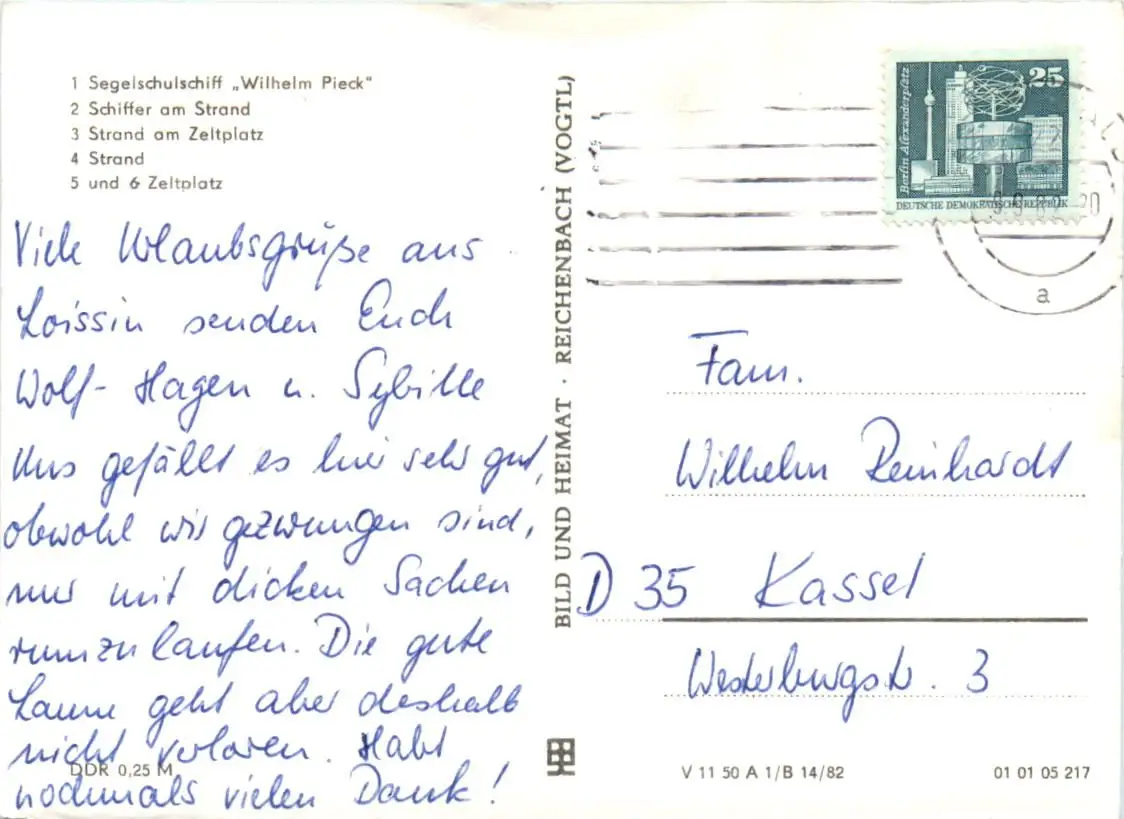 1 Segelschulschiff „Wilhelm Pieck“
2 Schiffer am Strand
3 Strand am Zeltplatz
4 Strand
5 und 6 Zeltplatz
Viele Urlaubsgrüße aus
Loissin senden Euch
Wolf-Hagen u. Sybille
Uns gefällt es hier sehr gut,
obwohl wir gezwungen sind,
nur mit dicken Sachen
rumzulaufen. Die gute
Laune geht aber deshalb
nicht verloren. Habt
nochmals vielen Dank!
DDR 0,25 M
BILD UND HEIMAT · REICHENBACH (VOGTL)
25
Berlin Alexanderplatz
DEUTSCHE DEMOKRATISCHE REPUBLIK
a
Fam.
Wilhelm Reinhardt
D 35 Kassel
Westerburgstr. 3
V 11 50 A 1/B 14/82
01 01 05 217